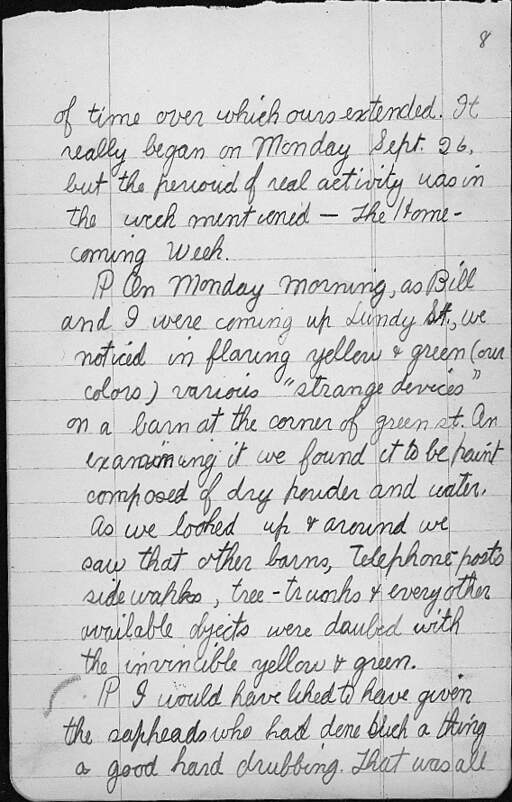 8
of time over which ours extended. It
really began on Monday Sept. 26,
but the perioud of real activity was in
the week mentioned — The Home-
coming Week.
P On Monday morning, as Bill
and I were coming up Lundy St., we
noticed in flaring yellow & green (our
colors) various "strange devices"
on a barn at the corner of green st. On
examining it we found it to be paint
composed of dry powder and water.
As we looked up & around we
saw that other barns, Telephone posts
sidewahks, tree-trunks & every other
available objects were daubed with
the invincible yellow & green.
P I would have liked to have given
the sapheads who had done such a thing
a good hard drubbing. That was all